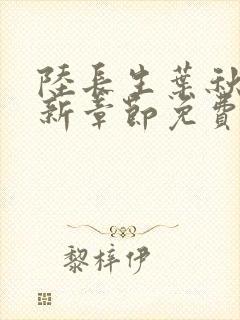 陸長生葉秋
新章節免費
黎梓伊